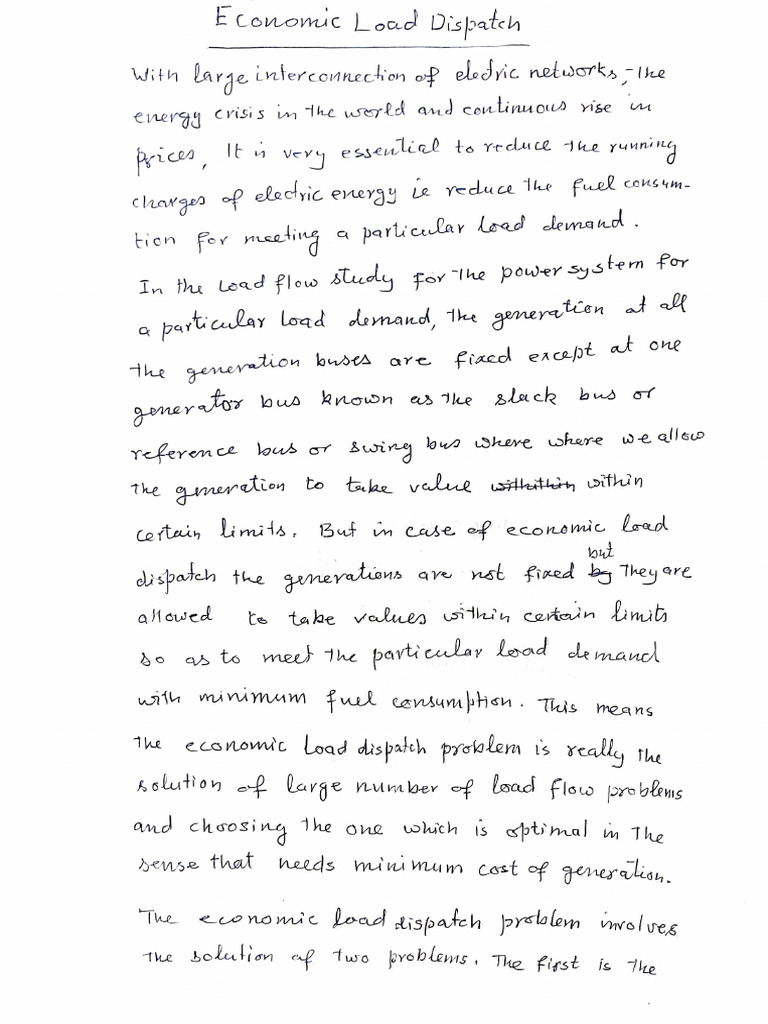 Economic Load Dispatch
With large interconnection of electric networks, the
energy crisis in the world and continuous rise in
prices, It is very essential to reduce the running
charges of electric energy ie reduce the fuel consum-
tion for meeting a particular load demand.
In the Load flow study for the power system for
a particular load demand, the generation at all
the generation buses are fixed except at one
generator bus known as the slack bus or
reference bus or swing bus where where we allow
the generation to take value withithin within
certain limits. But in case of economic load
but
dispatch the generations are not fixed by They are
allowed to take values within certain limits
so as to meet the particular load demand
with minimum fuel consumption. This means
the economic Load dispatch problem is really the
solution of large number of load flow problems
and choosing the one which is optimal in the
sense that needs minimum cost of generation.
The economic load dispatch problem involves
the solution of two problems. The first is the